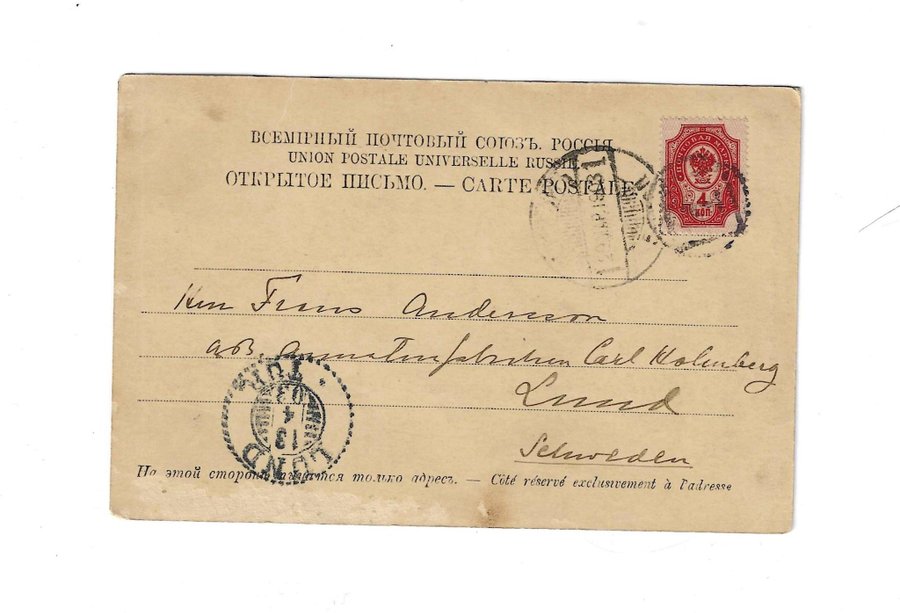 ВСЕМІРНЫЙ ПОЧТОВЫЙ СОЮЗЪ. РОССІЯ
UNION POSTALE UNIVERSELLE RUSSIE
ОТКРЫТОЕ ПИСЬМО. — CARTE POSTALE
ПОЧТОВАЯ МАРКА
4
КОП
Herrn Frans Andersson
AB. Armaturfabriken Carl Holmberg
Lund
Schweden
LUND
13
4
03
TUR.
На этой сторонѣ пишется только адресъ. — Côté réservé exclusivement à l'adresse